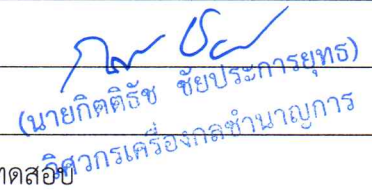 (นายกิตติธัช ชัยประการยุทธ)
วิศวกรเครื่องกลชำนาญการ
ทดสอบ